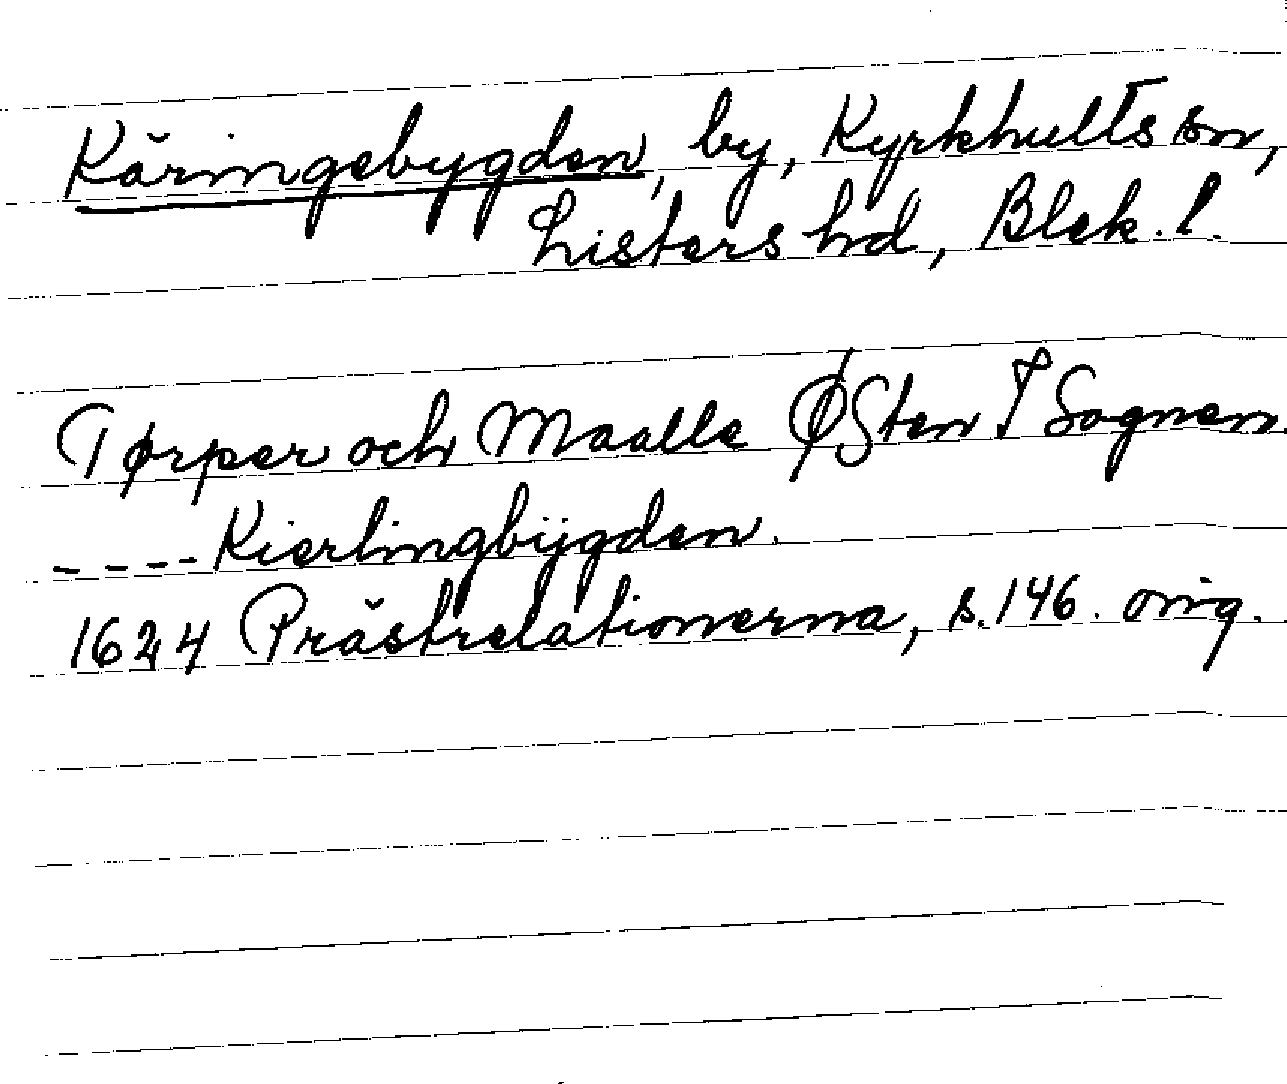 Käringebygden, by, Kyrkhults sn,
Listers hd, Blek. l.
Tørper och Maalle ØSten I Sognen
---- Kierlingbÿgden.
1624 Prästrelationerna, s. 146. orig.